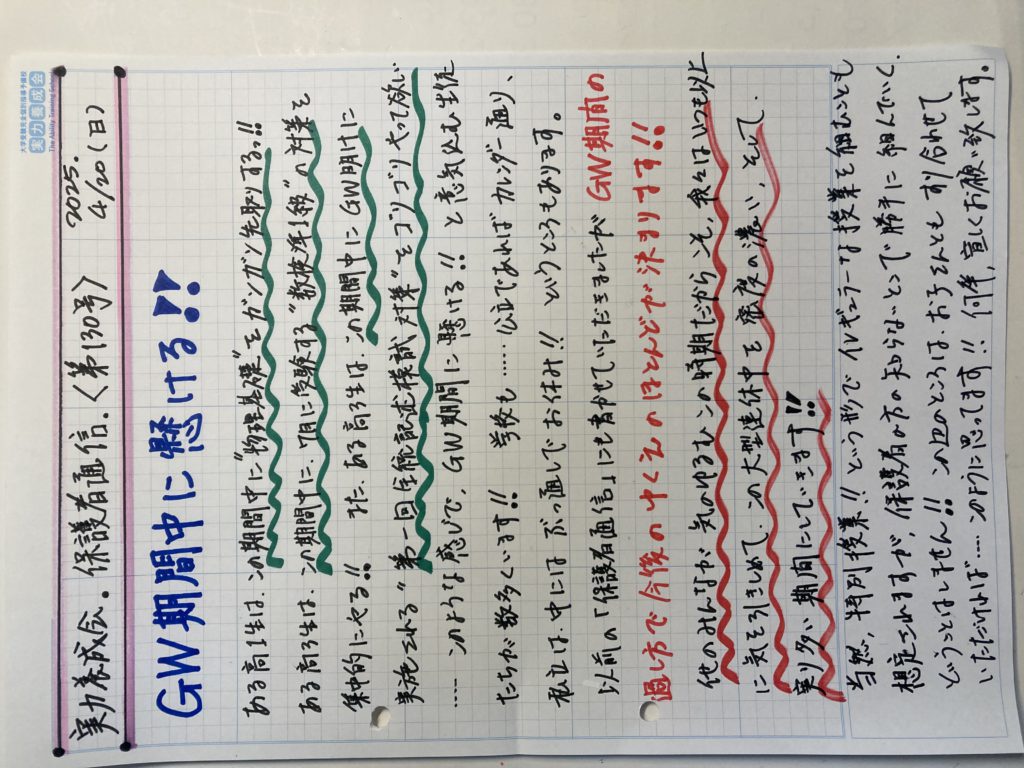 大学受験完全個別指導予備校
実力養成会
The Ability Training School
実力養成会. 保護者通信.〈第130号〉 2025. 4/20(日)
GW期間中に懸ける!!
ある高1生は、この期間中に"物理基礎"をガンガン先取りする!!
ある高3生は、この期間中に、7月に受験する"数検準1級"の対策を
集中的にやる!! また、ある高3生は、この期間中にGW明けに
実施される"第一回全統記述模試対策"をゴリゴリやって欲しい
……このような感じで、GW期間に懸ける!! と意気込む生徒
たちが数多くいます!! 学校も……公立であればカレンダー通り、
私立は、中にはぶっ通しでお休み!! というところもあります。
以前の「保護者通信」にも書かせていただきましたがGW期間の
過し方で今後のゆくえのほとんどが決まります!!
他のみんなが気のゆるむこの時期だからこそ、我々はいつも以上
に気を引きしめて、この大型連休中を密度の濃い、そして、
実り多い期間にしていきます!!
当然、特別授業!! という形でイレギュラーな授業を組むことも
想定されますが、保護者の方の知らないところで勝手に組んでいく、
どうことはしません!! この辺のところは、お子さんともすり合わせて
いただければ……このように思ってます!! 何卒、宜しくお願い致します。